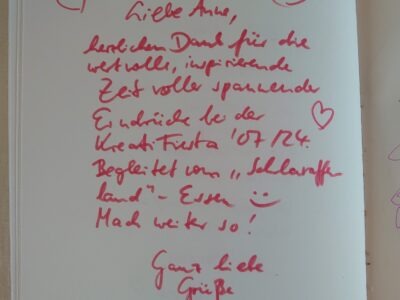 Liebe Anne,
herzlichen Dank für die
wertvolle, inspirierende
Zeit voller spannender
Eindrücke bei der
KreatiFiesta '07/24.
Begleitet vom „Schlaraffen
land"- Essen
Mach weiter so!
Ganz liebe
Grüße